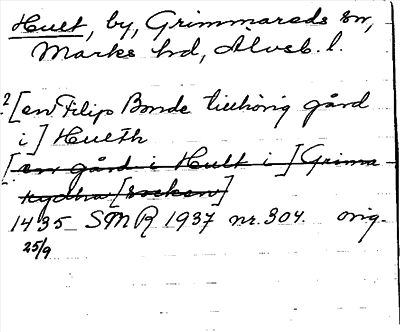 Hult, by, Grimmareds sn,
Marks hd, Älvsb. l.
2 [en Filip Bonde tillhörig gård
i] Hulth
[en gård i Hult i] Grimma-
rydha [socken]
1435 SMR 1937 nr. 304. orig.
25/9